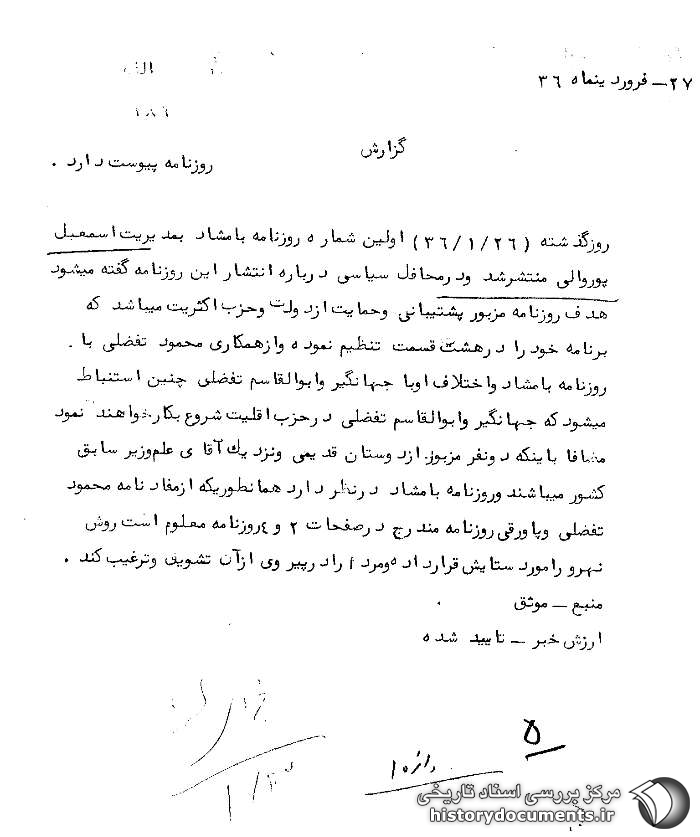 الف
۲۷ــ فروردینماه ۳۶
۲۸۶
گزارش
روزنامه پیوست دارد .
روزگذشته (۳۶/۱/۲۶) اولین شماره روزنامه بامشاد بمدیریت اسمعیل
پوروالی منتشرشد ودرمحافل سیاسی درباره انتشار این روزنامه گفته میشود
هدف روزنامه مزبور پشتیبانی وحمایت ازدولت وحزب اکثریت میباشد که
برنامه خود را درهشت قسمت تنظیم نموده وازهمکاری محمود تفضلی با .
روزنامه بامشاد واختلاف اوبا جهانگیر وابوالقاسم تفضلی چنین استنباط
میشود که جهانگیر وابوالقاسم تفضلی درحزب اقلیت شروع بکارخواهند نمود
مضافا باینکه دونفر مزبور ازدوستان قدیمی ونزدیك آقای علم وزیر سابق
کشور میباشند وروزنامه بامشاد درنظر دارد همانطوریکه ازمفاد نامه محمود
تفضلی وپاورقی روزنامه مندرج درصفحات ۲ و ٤ روزنامه معلوم است روش
نهرو رامورد ستایش قرارداده ومردم رادرپیروی ازآن تشویق وترغیب کند .
منبع ــ موثق
ارزش خبر ــ تایید شده
۵
مرکز بررسی اسناد تاریخی
historydocuments.ir